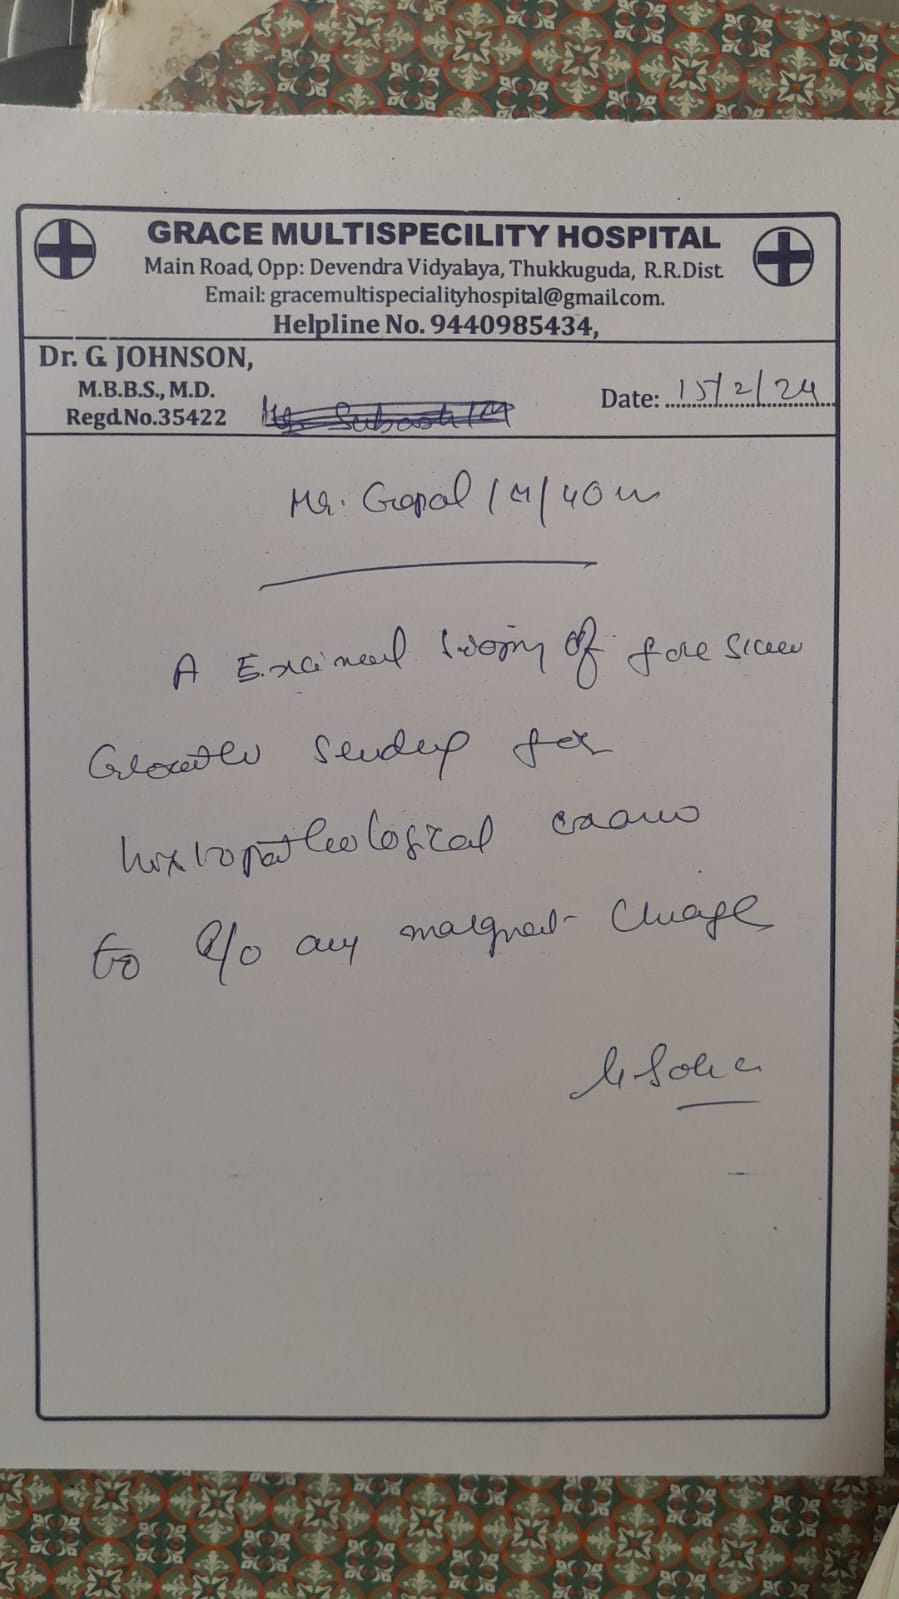 GRACE MULTISPECILITY HOSPITAL
Main Road, Opp: Devendra Vidyalaya, Thukkuguda, R.R.Dist
Email: gracemultispecialityhospital@gmail.com.
Helpline No. 9440985434,
Dr. G. JOHNSON,
M.B.B.S., M.D.
Regd.No.35422
Date: 15/2/24
Mr. Gopal / M / 40
A Excisional biopsy of fore skin
Growth sending for
histopathological exam
to R/o any malignant change